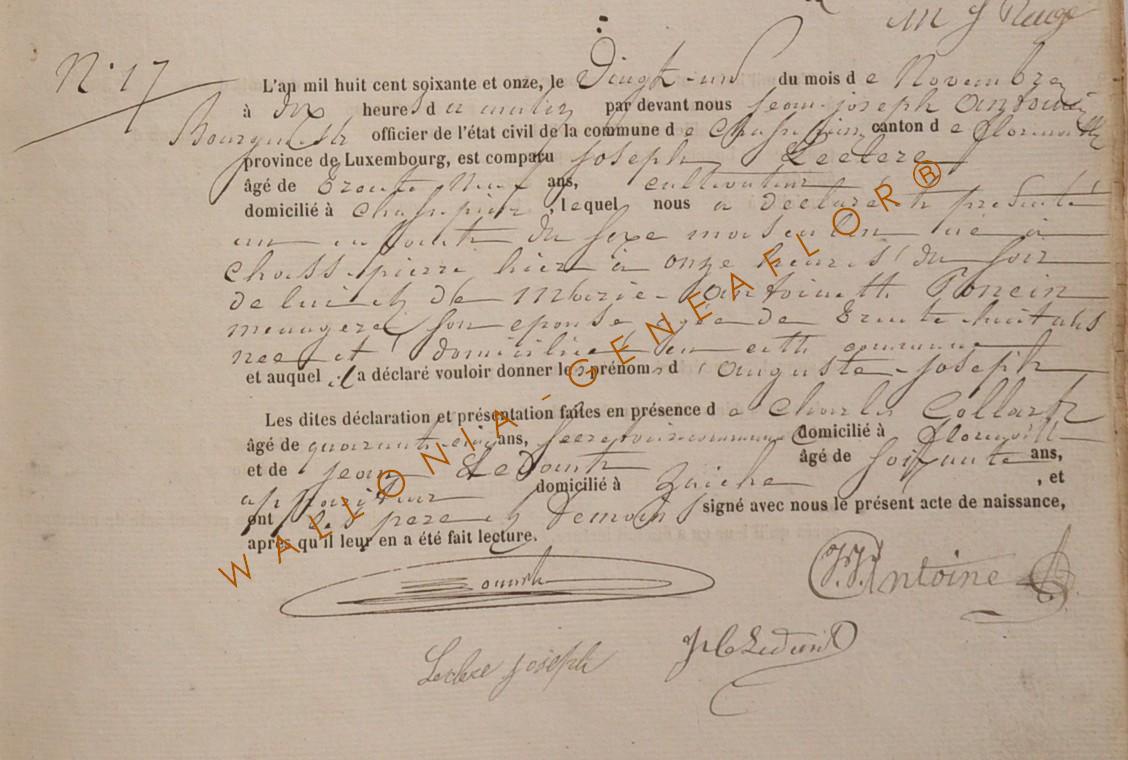 N° 17
L'an mil huit cent soixante et onze, le Vingt-un du mois de Novembre
à dix heures du matin par devant nous Jean-joseph Antoine
Bourgmestre officier de l'état civil de la commune de Chassepierre canton de florenville
province de Luxembourg, est comparu Joseph Leclere
âgé de trente Neuf ans, cultivateur
domicilié à Chassepierre, lequel nous a déclaré et présenté
un enfant du sexe masculin né à
chassepierre hier à onze heures du soir
de lui et de Marie-Antoinette Poncin
menagere, son epouse, agée de trente-huit ans
nee et domiciliée en cette commune
et auquel il a déclaré vouloir donner les prénoms d'auguste-Joseph
Les dites déclaration et présentation faites en présence de Charles Collart
âgé de quarante cinq ans, secretaire communal domicilié à florenville
et de jean âgé de soixante ans,
domicilié à , et
ont les pere et temoins signé avec nous le présent acte de naissance,
après qu'il leur en a été fait lecture.
JJ Antoine
Leclere joseph
WALLONIA - GENEAFLOR®